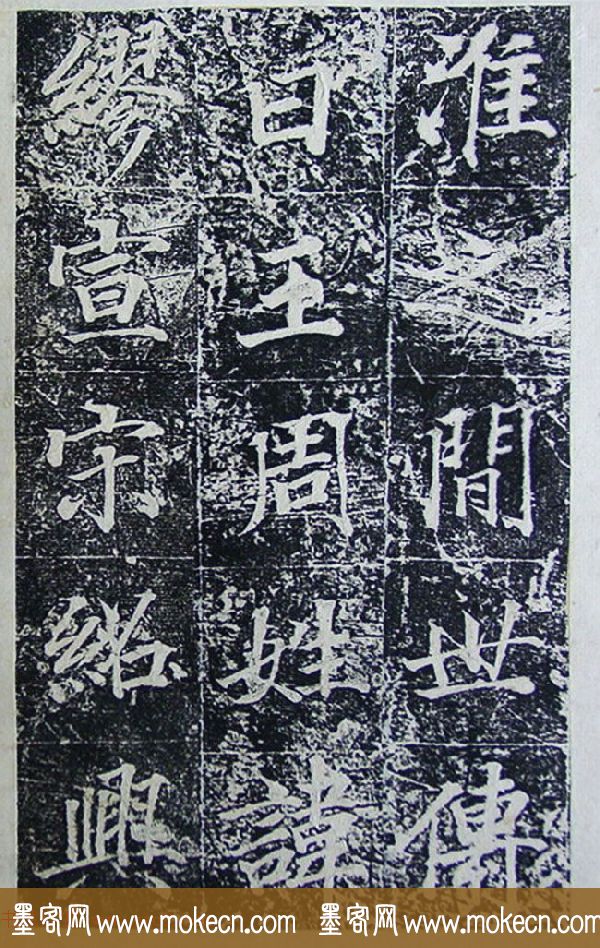 淮之間世傳
曰王周姓諱
繆宣宗紹興
墨客网 www.mokecn.com 墨客网 www.mokecn.com